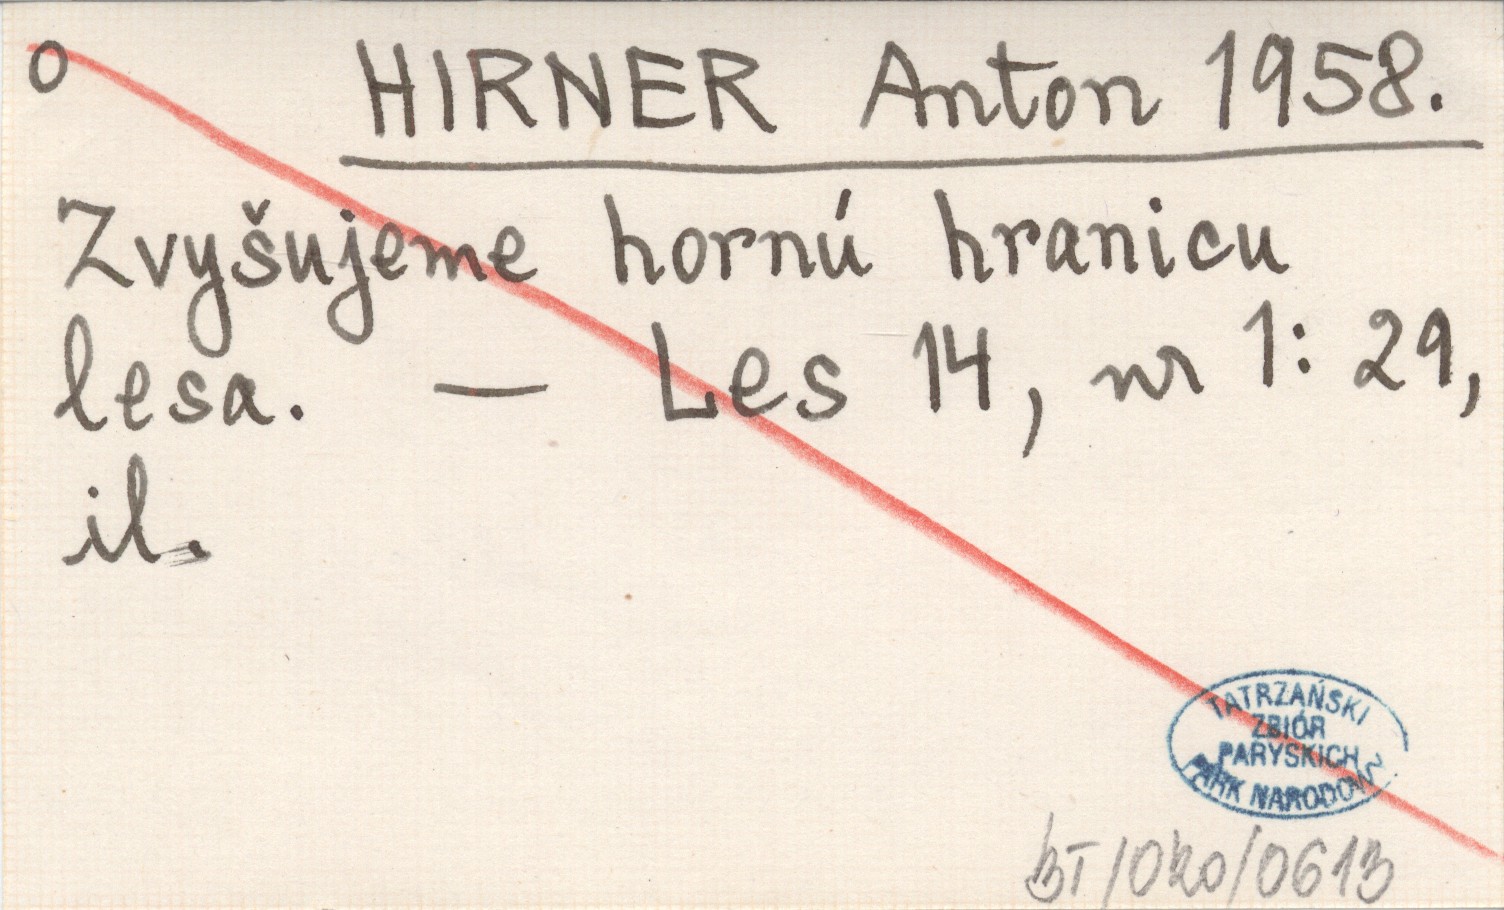 o HIRNER Anton 1958.
Zvyšujeme hornú hranicu
lesa. — Les 14, nr 1: 29,
il.
TATRZAŃSKI
ZBIÓR
PARYSKICH
PARK NARODOWY
BT/0kο/0613